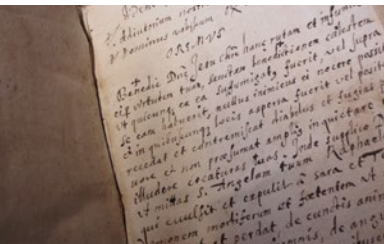 Adiutorium nostrū
℣ Dominus vobiscum
OREMUS
Benedic Dne Jesu Chr̄e hanc rutam et infunde
ei virtutem tuam, benedictionem cælestem
ut quicunq; ea suffumigatq fuerit, vel supra
se eam habuerit, nullus inimicus ei nocere possit
in quibuscunq; locis aspersa fuerit vel posita
recedat et contremiscat diabolus et fugiat
et non præsumat ampliq inquietare
illudere creaturas tuas. Inde supplico
ut mittas S. Angelum tuum Raphaelem
qui evulsit et expulit à sara et
dæmonem mortiferum et fœtentem ut
et perdat, de cunctis anim